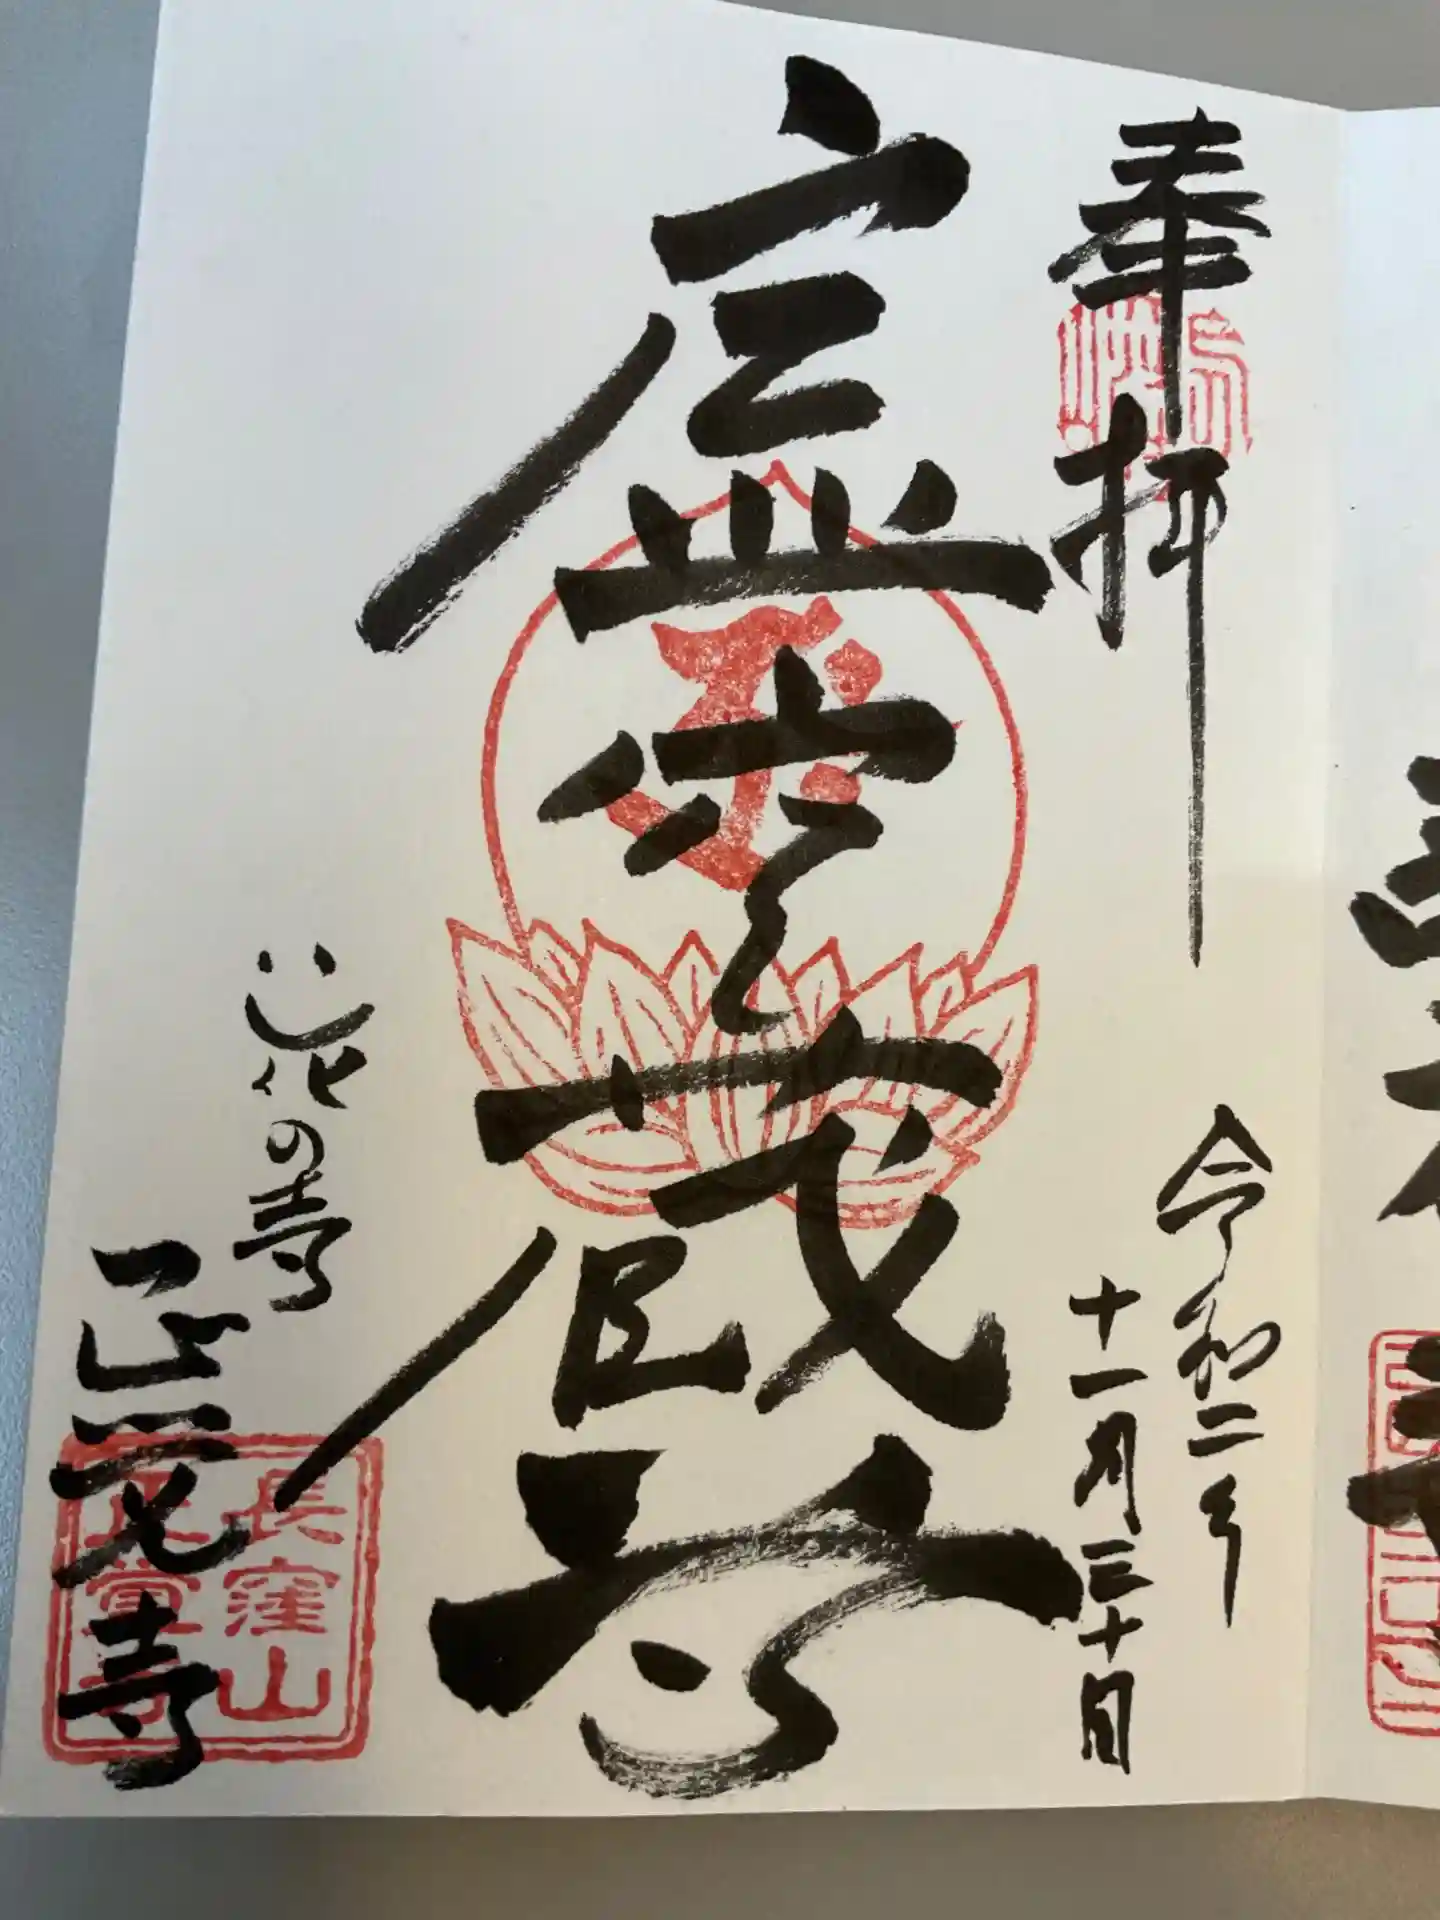 奉拝
令和二年
十一月三十日
虚空蔵尊
花の寺
正覚寺
長窪山
正覚寺